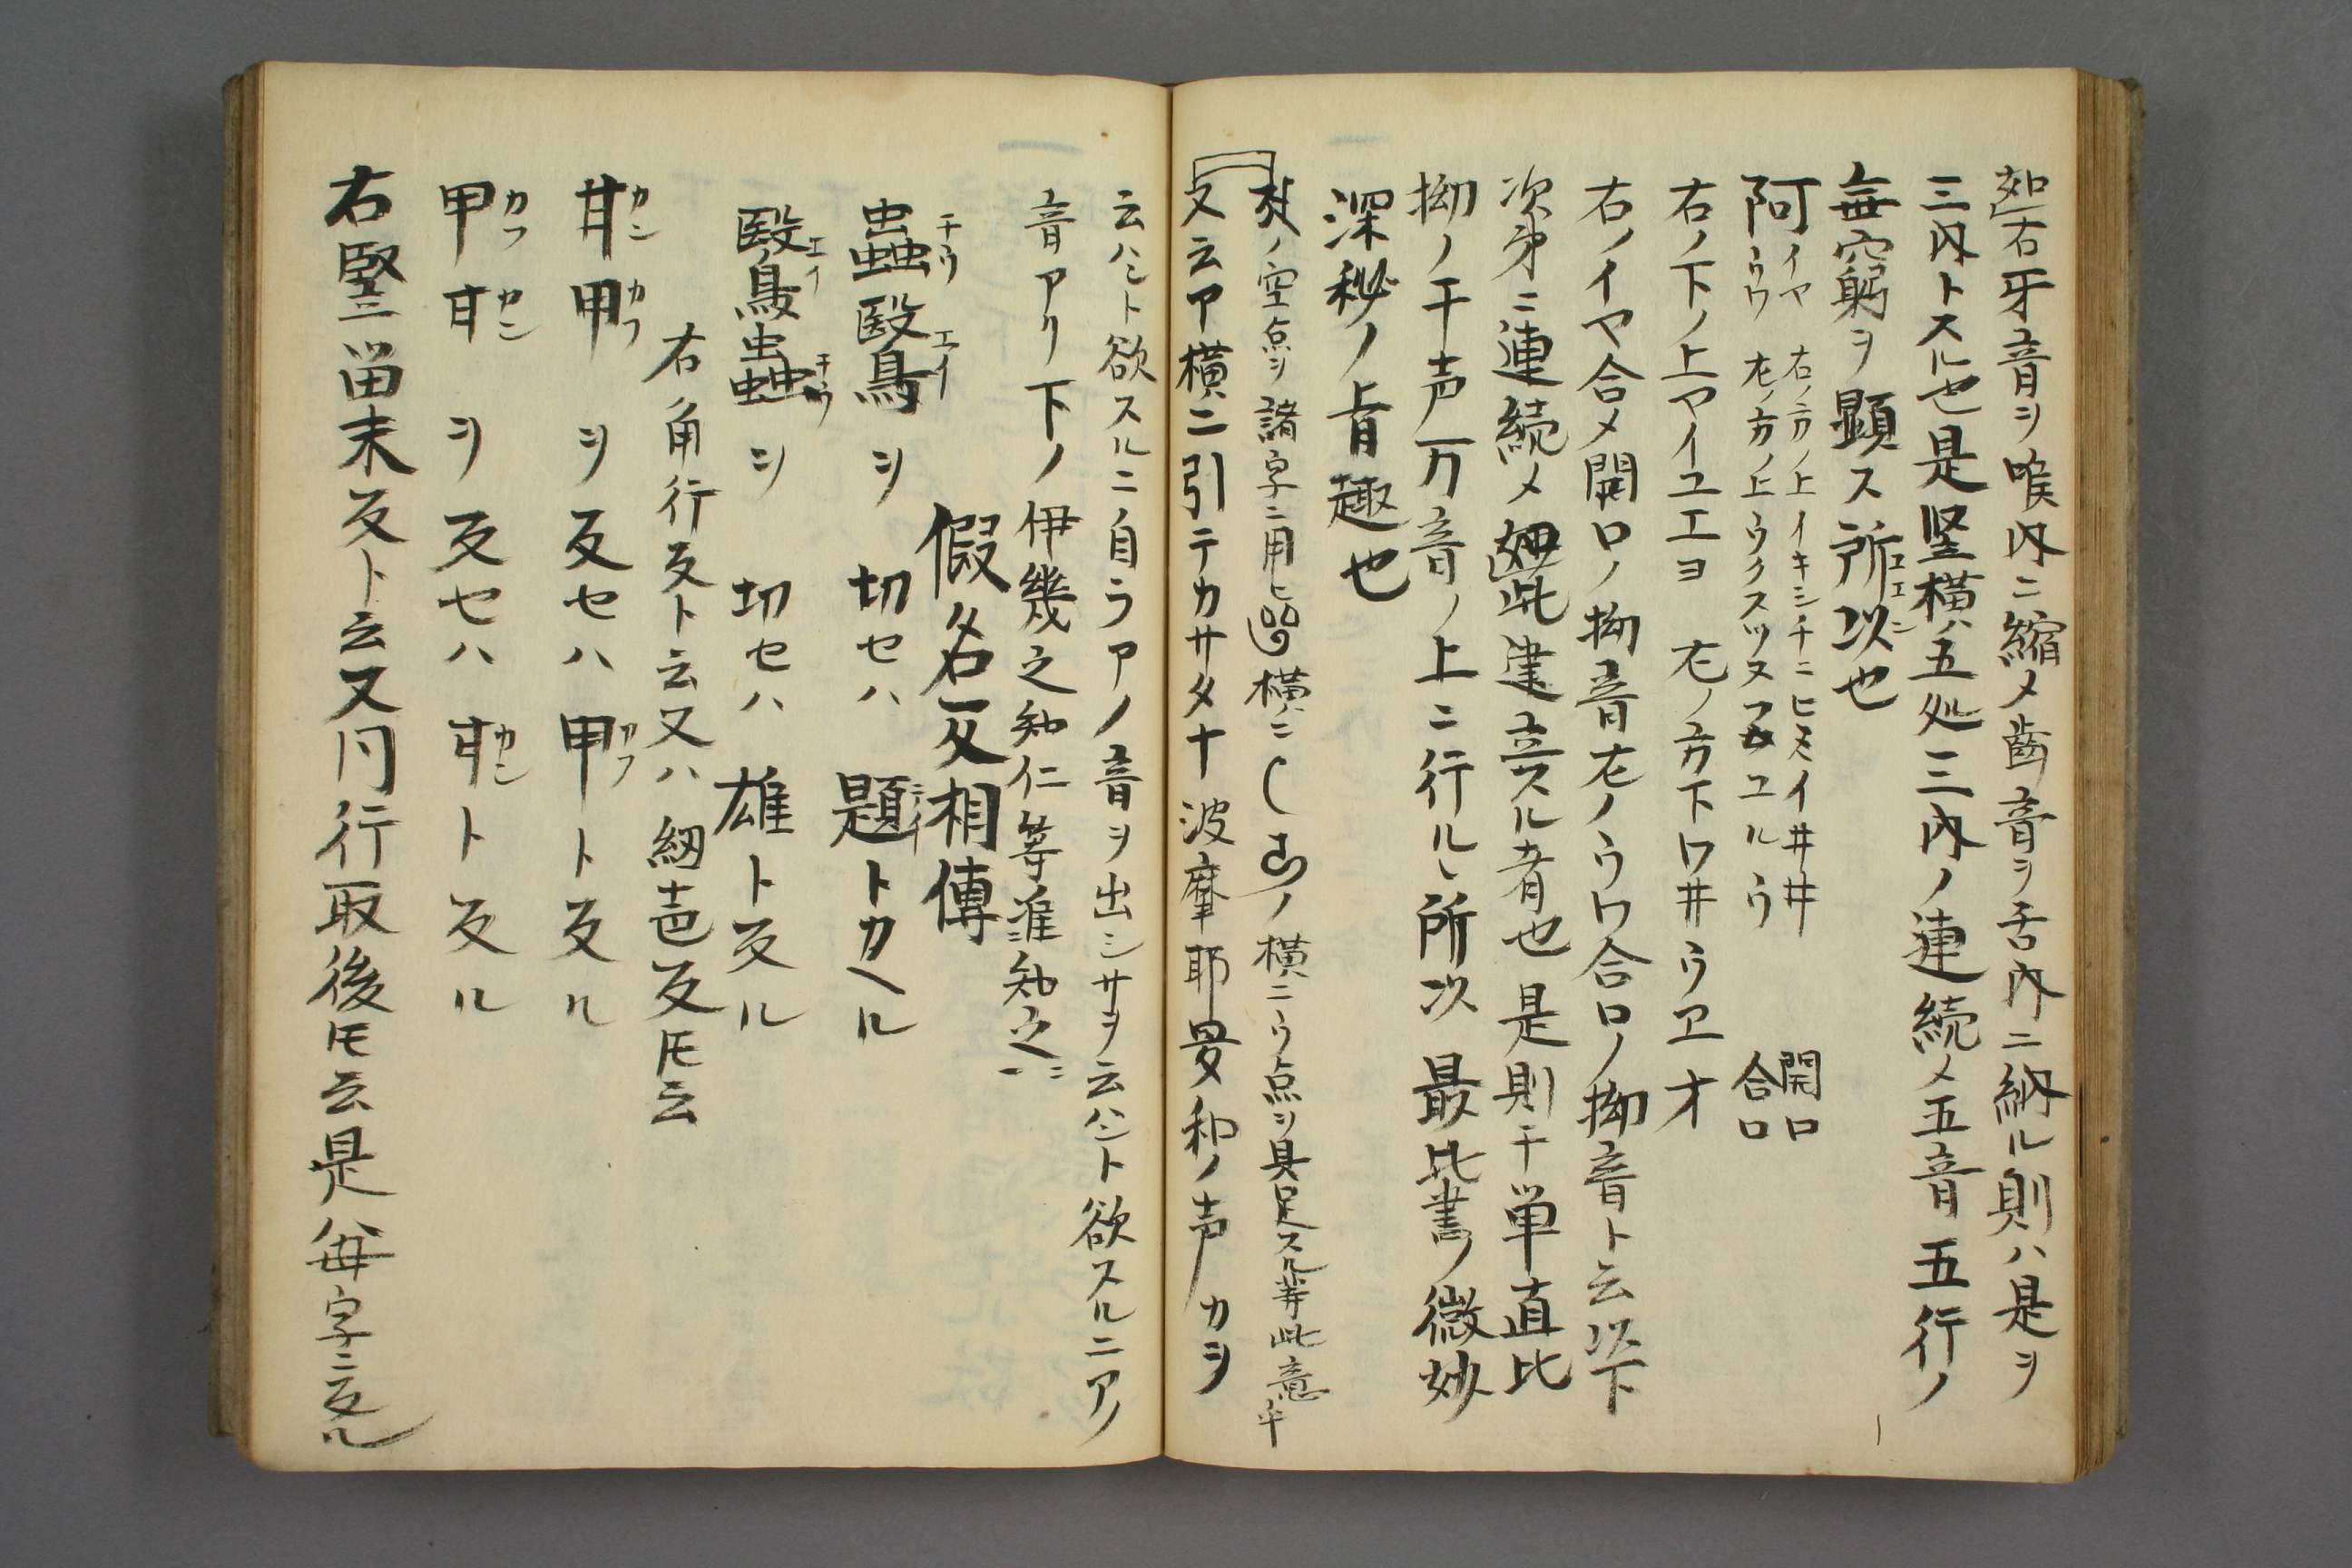 右牙音ヲ喉内ニ縮メ齒音ヲ舌内ニ納ル則ハ是ヲ
三内トスル也是竪横ノ五処三内ノ連続メ五音五行ノ
無窮ヲ顕ス所以也
エエン
阿イヤ 右ノ方ノ上イキシチニヒミイ井井 開口
ウウ 左ノ方ノ上ウクスツヌフムユルウ 合口
右ノ下ノ上ヤイユエヨ 左ノ方下ワ井ウヱオ
右ノイヤ合メ開口ノ拗音左ノウワ合口ノ拗音ト云以下
次第ニ連続メ如此建立スル者也是則千単直比
拗ノ千声万音ノ上ニ行ルヽ所以最此書ノ微妙
深秘ノ旨趣也
ノ空点ヲ諸字ニ用ヒ横ニノ横ニウ点ヲ具足スル等此意
又云ア横ニ引テカサタナ波摩耶曼和ノ声カヲ
云ハント欲スルニ自ラアノ音ヲ出シサヲ云ハント欲スルニアノ
音アリ下ノ伊幾之知仁等准知之
假名反相傳
蟲チウ鷖エイヲ 切セハ 題トカヘル
鷖エイ蟲チウヲ 切セハ 雄ト反ル
右角行反ト云又ハ紐声反トモ云
甘カン甲カフヲ反セハ甲カフト反ル
甲カフ甘カンヲ反セハ甘カント反ル
右竪當末反ト云又同行取後トモ云是毎字ニ反ル